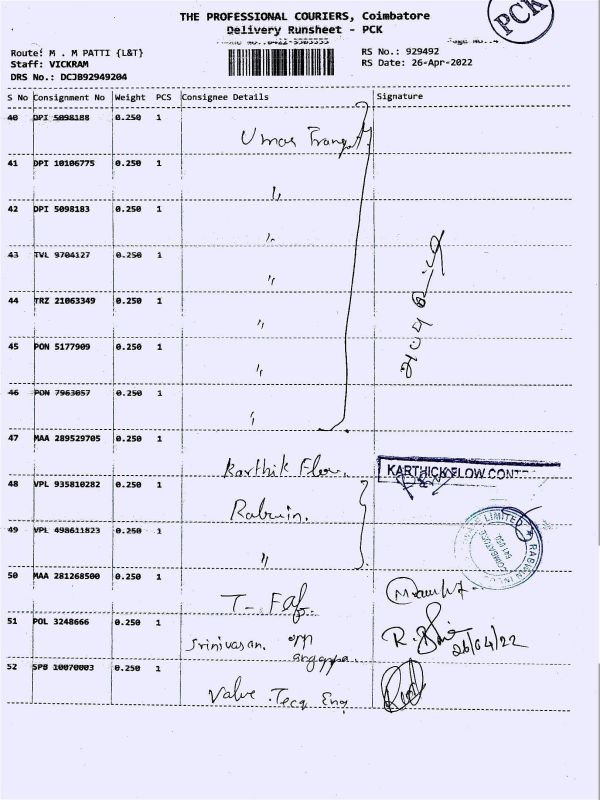 THE PROFESSIONAL COURIERS, Coimbatore
PCK
Delivery Runsheet - PCK
Route: M . M PATTI {L&T}
RS No.: 929492
Staff: VICKRAM
RS Date: 26-Apr-2022
DRS No.: DCJB92949204
S No Consignment No Weight PCS Consignee Details Signature
40 DPI 5098188 0.250 1
41 DPI 10106775 0.250 1
"
42 DPI 5098183 0.250 1
"
43 TVL 9704127 0.250 1
"
44 TRZ 21063349 0.250 1
"
45 PON 5177909 0.250 1
"
46 PON 7963057 0.250 1
"
47 MAA 289529705 0.250 1
Karthik Flow.
KARTHICK FLOW CONT
48 VPL 935810282 0.250 1
49 VPL 498611823 0.250 1
"
LIMITED
COIMBATORE
50 MAA 281268500 0.250 1
T- Faf.
51 POL 3248666 0.250 1
Srinivasan. opp
angappa.
26/04/22
52 SPB 10070003 0.250 1
Valve .Tecq Eng